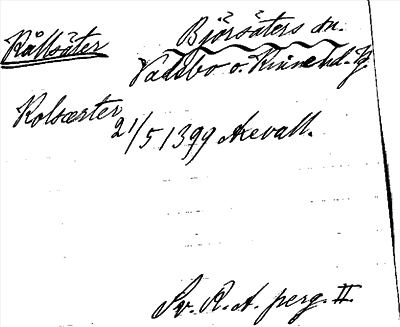 Rållsäter
Björsäters sn.
Vadsbo o. Kinne hd. Vg.
Rolsæter
21/5 1399 Akevall.
Sv. R. A. perg. II